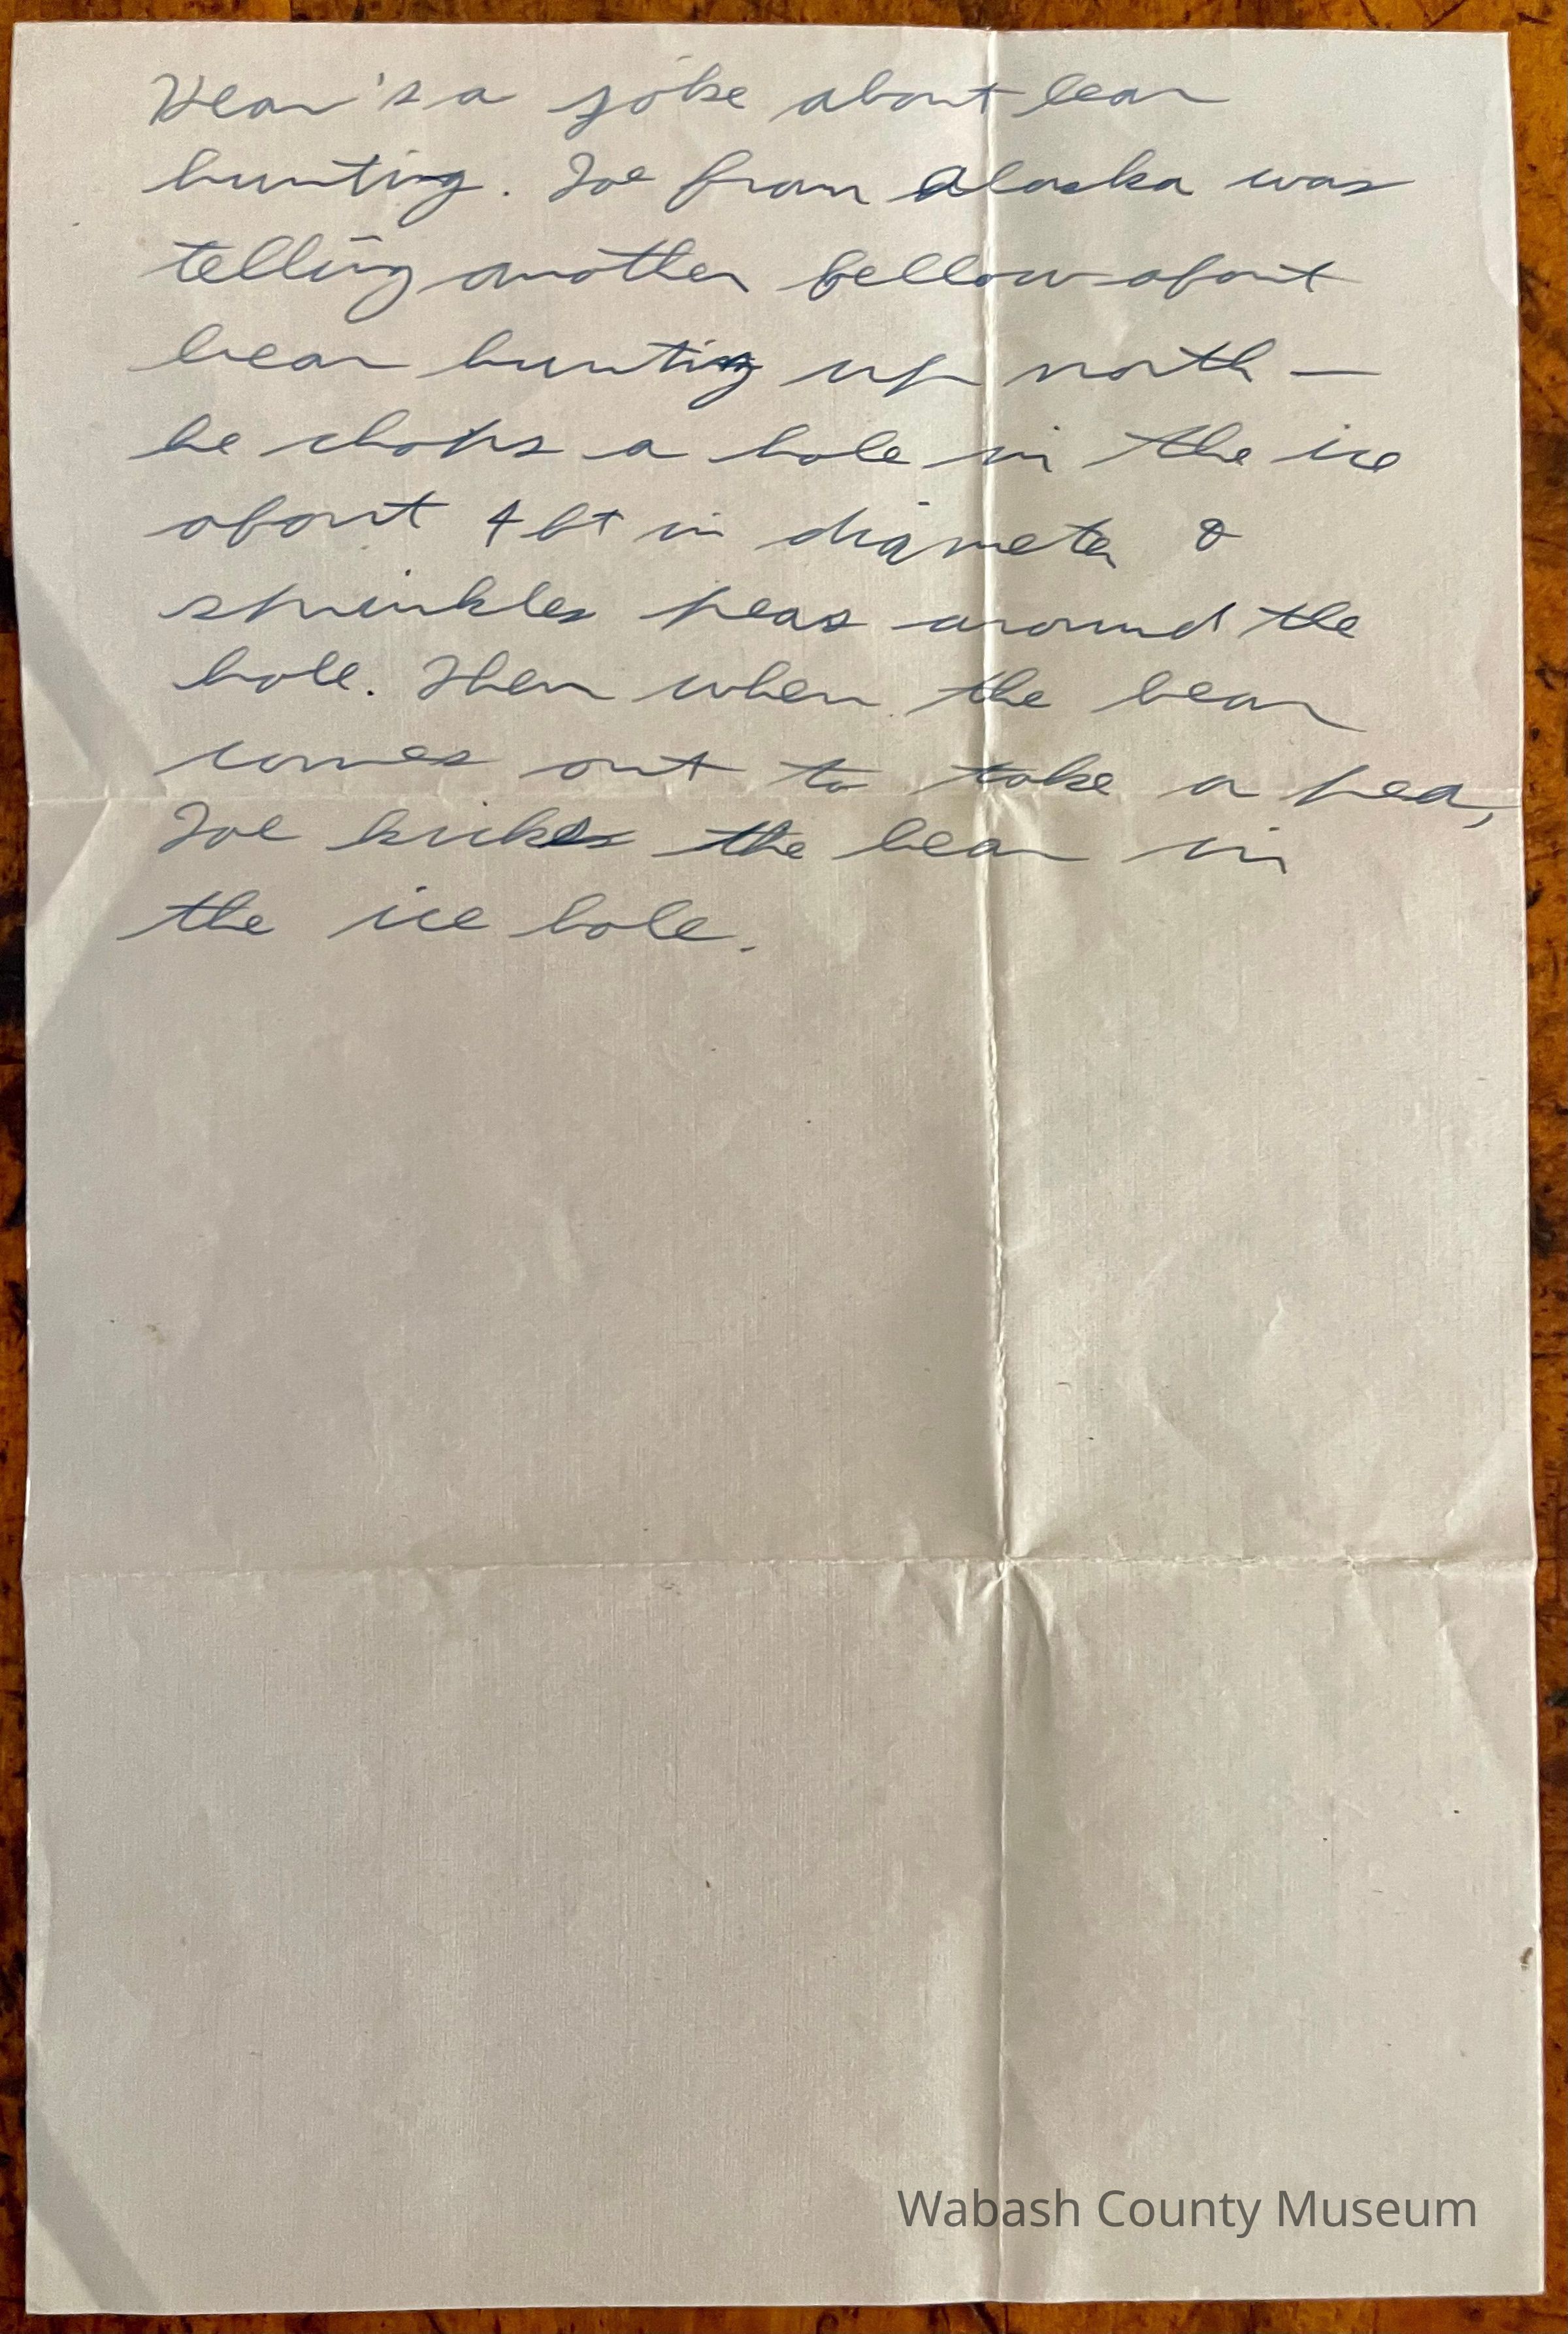 Hear's a joke about bear
hunting. Joe from Alaska was
telling another fellow about
bear hunting up north —
he chops a hole in the ice
about 4 ft in diameter &
sprinkles peas around the
hole. Then when the bear
comes out to take a pea,
Joe kicks the bear in
the ice hole.
Wabash County Museum